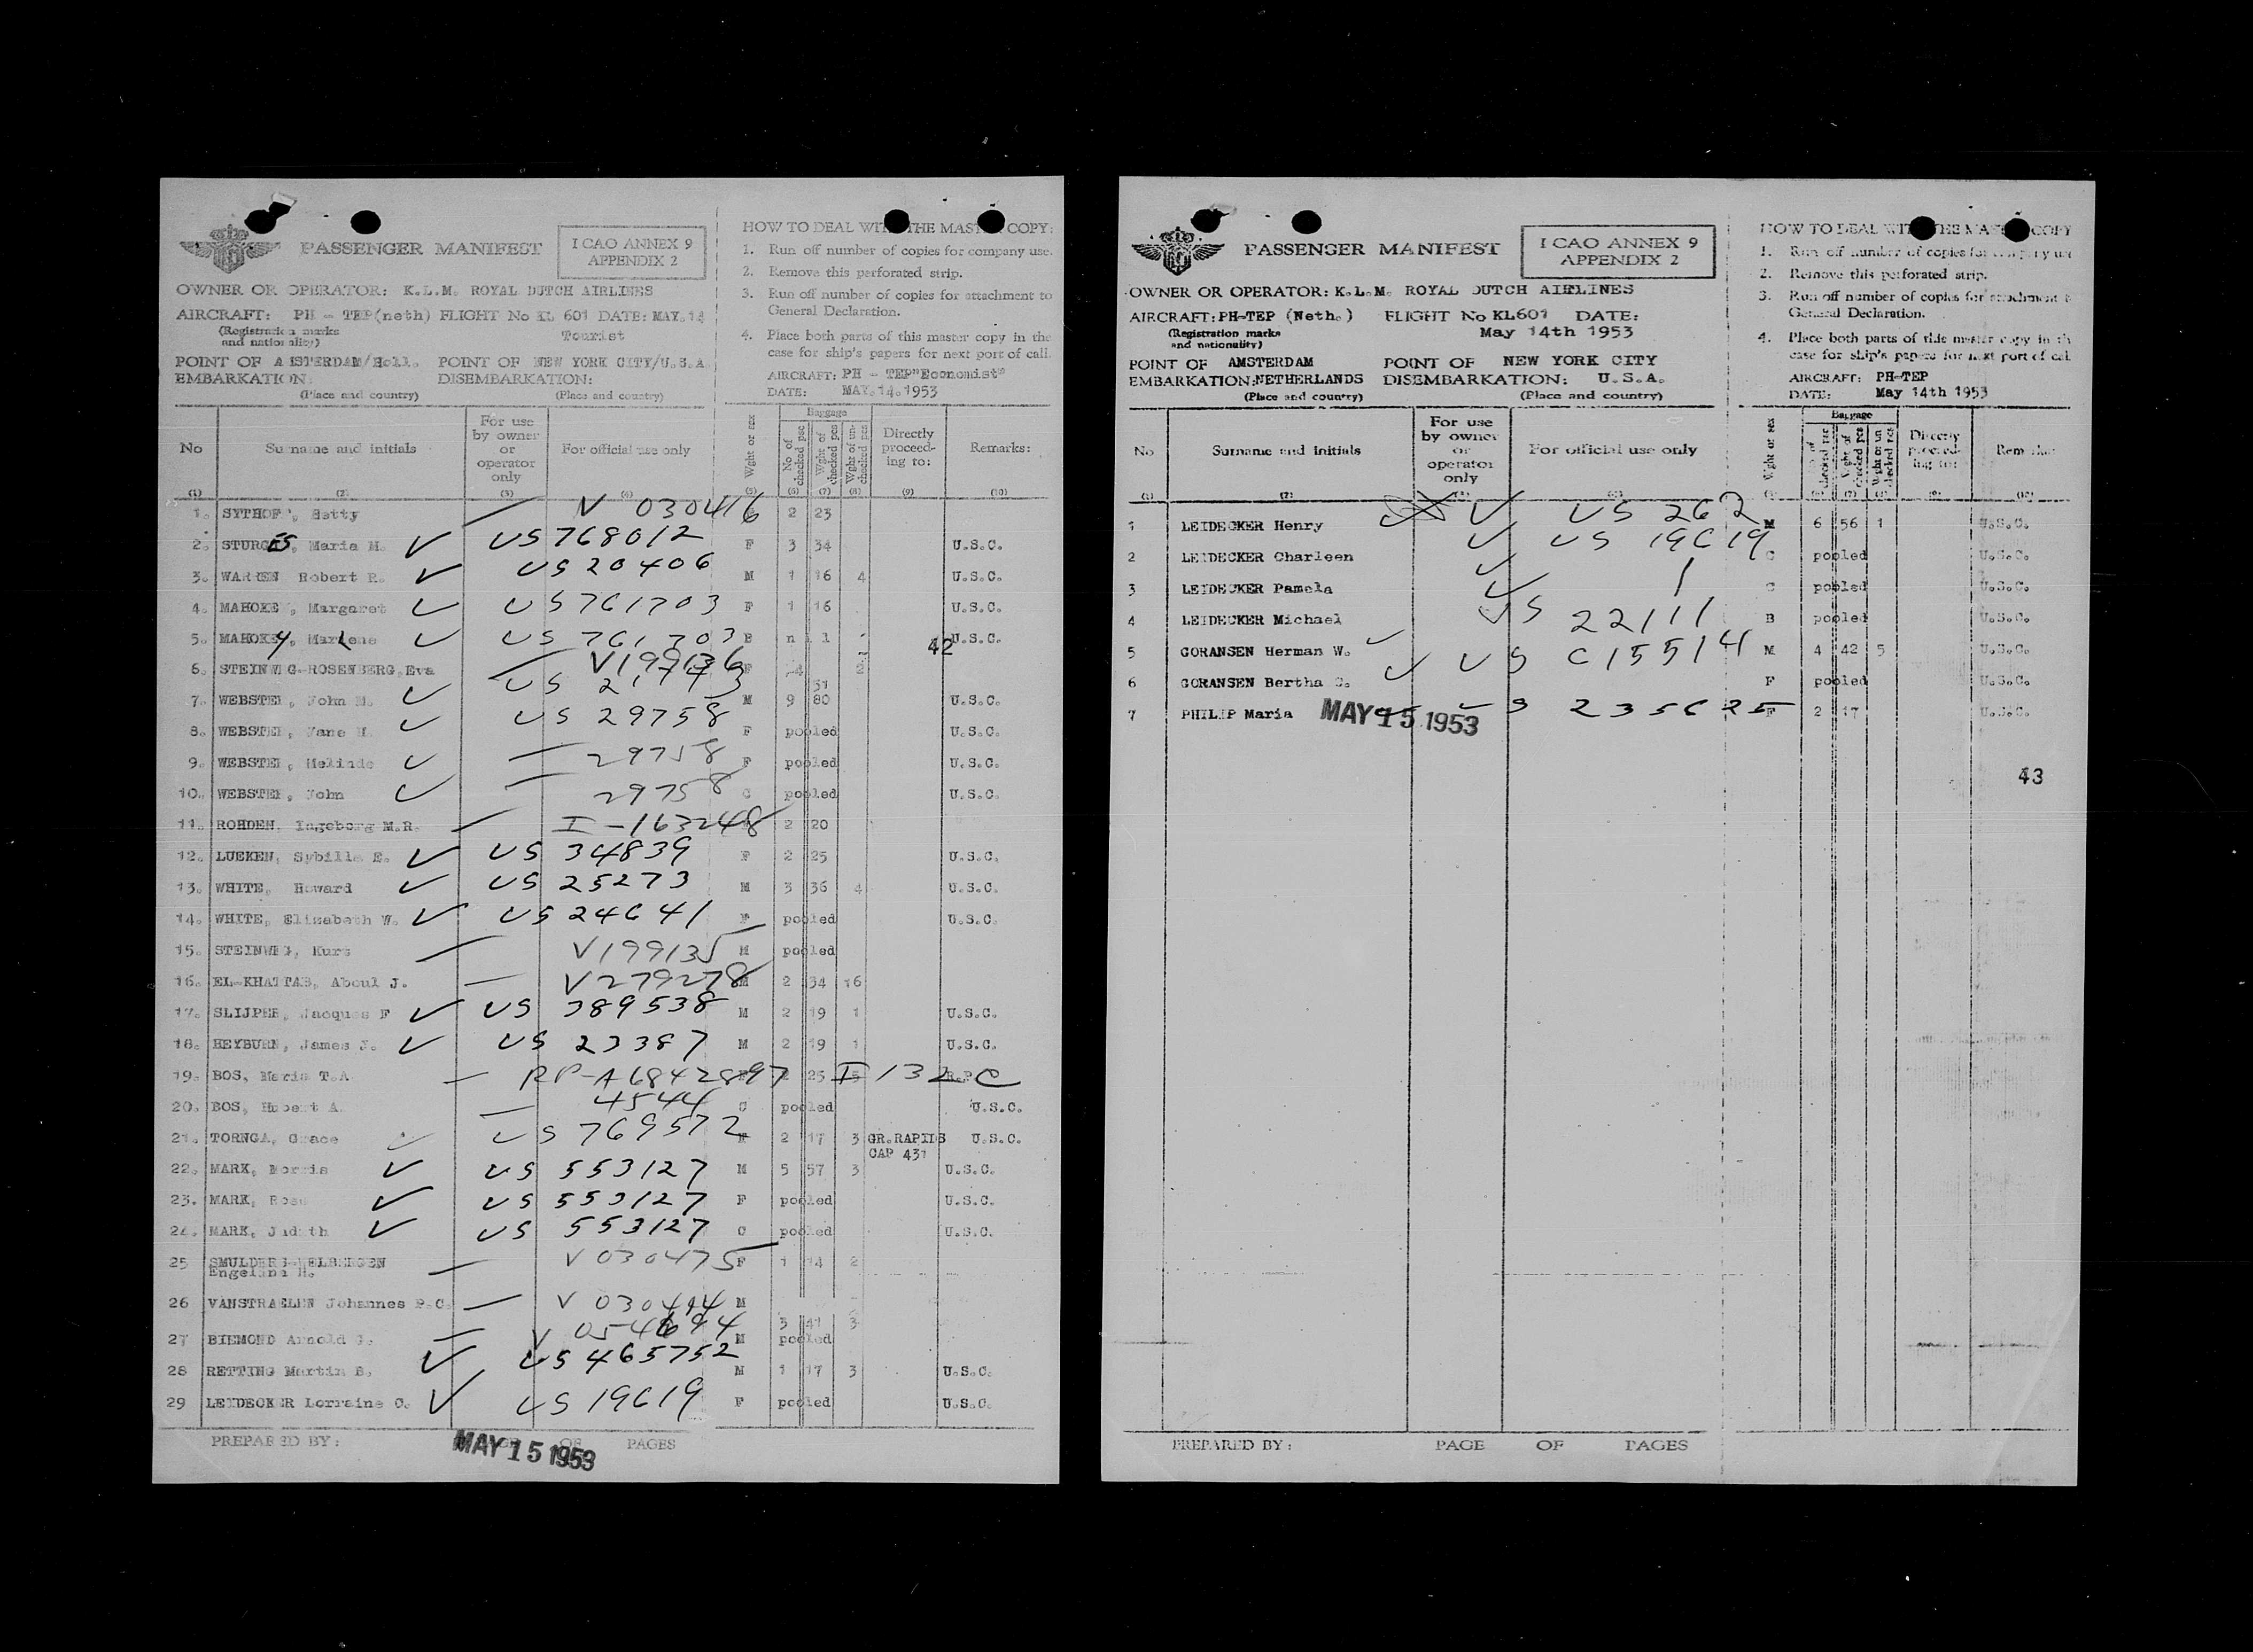 PASSENGER MANIFEST
I CAO ANNEX 9
APPENDIX 2
OWNER OR OPERATOR: K.L.M. ROYAL DUTCH AIRLINES
AIRCRAFT: PH - TEP(neth) FLIGHT No KL 601 DATE: MAY.14
(Registration marks and nationality) Tourist
POINT OF EMBARKATION: AMSTERDAM/Holl. POINT OF DISEMBARKATION: NEW YORK CITY/U.S.A.
(Place and country) (Place and country)
HOW TO DEAL WITH THE MASTER COPY:
1. Run off number of copies for company use.
2. Remove this perforated strip.
3. Run off number of copies for attachment to
General Declaration.
4. Place both parts of this master copy in the
case for ship's papers for next port of call.
AIRCRAFT: PH - TEP"Economist"
DATE: MAY.14.1953
No Surname and initials For use by owner or operator only For official use only Wght or sex Baggage No of checked pcs Wght of checked pcs Wght of un-checked pcs Directly proceed-ing to: Remarks:
(1) (2) (3) (4) (5) (6) (7) (8) (9) (10)
1. SYTHOF, Betty V 030416 2 23
2. STURGES, Maria M. US 768012 F 3 34 U.S.C.
3. WARREN Robert R. US 20406 M 1 16 4 U.S.C.
4. MAHOKE, Margaret US 761703 F 1 16 U.S.C.
5. MAHOKEY, Marlene US 761703 B n i l U.S.C.
42
6. STEINWEG-ROSENBERG, Eva V199136 F 2
31
7. WEBSTER, John M. US M 9 80 U.S.C.
8. WEBSTER, Jane US 29758 F pooled U.S.C.
9. WEBSTER, Melinde 29758 F pooled U.S.C.
10. WEBSTER, John 29758 C pooled U.S.C.
11. ROHDEN, Ingeborg M.R. I-163248 2 20
12. LUEKEN, Sybilla E. US 34839 F 2 25 U.S.C.
13. WHITE, Howard US 25273 M 3 36 4 U.S.C.
14. WHITE, Elizabeth W. US 24641 F pooled U.S.C.
15. STEINWEG, Kurt V199135 M pooled
16. EL-KHATTAB, Aboul J. V279278 M 2 34 16
17. SLIJPER, Jacques F US 389538 M 2 19 1 U.S.C.
18. HEYBURN, James J. US 23387 M 2 19 1 U.S.C.
19. BOS, Maria T.A. RP-A6842897 25 I 132 C
20. BOS, Hubert A. 4544 C pooled U.S.C.
21. TORNGA, Grace US 769572 2 17 3 GR.RAPIDS U.S.C.
CAP 431
22. MARK, Morris US 553127 M 5 57 3 U.S.C.
23. MARK, Rose US 553127 F pooled U.S.C.
24. MARK, Judith US 553127 C pooled U.S.C.
25 SMULDERS-WELBERGEN V 030475 F 1 14 2
Engelina H.
26 VANSTRAELEN Johannes P.C. V 030494 M
3 41 3
27 BIEMOND Arnold G. V 054694 M pooled
28 RETTING Martin B. US 465752 M 1 17 3 U.S.C.
29 LEIDECKER Lorraine C. US 19619 F pooled U.S.C.
PREPARED BY: PAGE OF PAGES
MAY 15 1953
PASSENGER MANIFEST
I CAO ANNEX 9
APPENDIX 2
OWNER OR OPERATOR: K.L.M. ROYAL DUTCH AIRLINES
AIRCRAFT: PH-TEP (Neth.) FLIGHT No KL601 DATE:
(Registration marks and nationality) May 14th 1953
POINT OF EMBARKATION: AMSTERDAM NETHERLANDS POINT OF DISEMBARKATION: NEW YORK CITY U.S.A.
(Place and country) (Place and country)
HOW TO DEAL WITH THE MASTER COPY
1. Run off number of copies for company use
2. Remove this perforated strip.
3. Run off number of copies for attachment t
General Declaration.
4. Place both parts of this master copy in th
case for ship's papers for next port of cal
AIRCRAFT: PH-TEP
DATE: May 14th 1953
No Surname and initials For use by owner or operator only For official use only Wght or sex Baggage No of checked pcs Wght of checked pcs Wght of un-checked pcs Directly proceed-ing to: Remarks
1 LEIDECKER Henry US 262 M 6 56 1 U.S.C.
2 LEIDECKER Charleen US 19619 C pooled U.S.C.
3 LEIDECKER Pamela C pooled U.S.C.
4 LEIDECKER Michael US 22111 B pooled U.S.C.
5 GORANSEN Herman W. US C15514 M 4 42 5 U.S.C.
6 GORANSEN Bertha C. F pooled U.S.C.
7 PHILIP Maria US 235625 F 2 17 U.S.C.
MAY 15 1953
43
PREPARED BY: PAGE OF PAGES